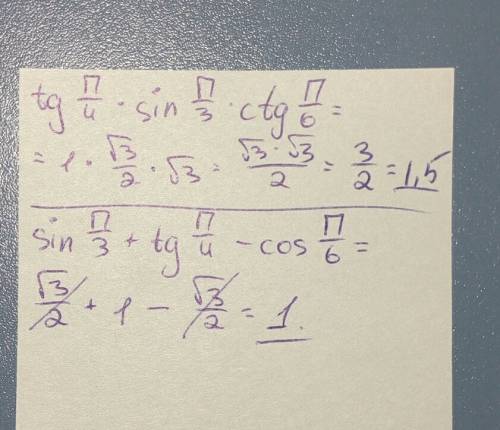 tg П/4 · sin П/3 · ctg П/6 =
= 1 · √3/2 · √3 = √3 · √3/2 = 3/2 = 1,5
sin П/3 + tg П/4 - cos П/6 =
√3/2 + 1 - √3/2 = 1.